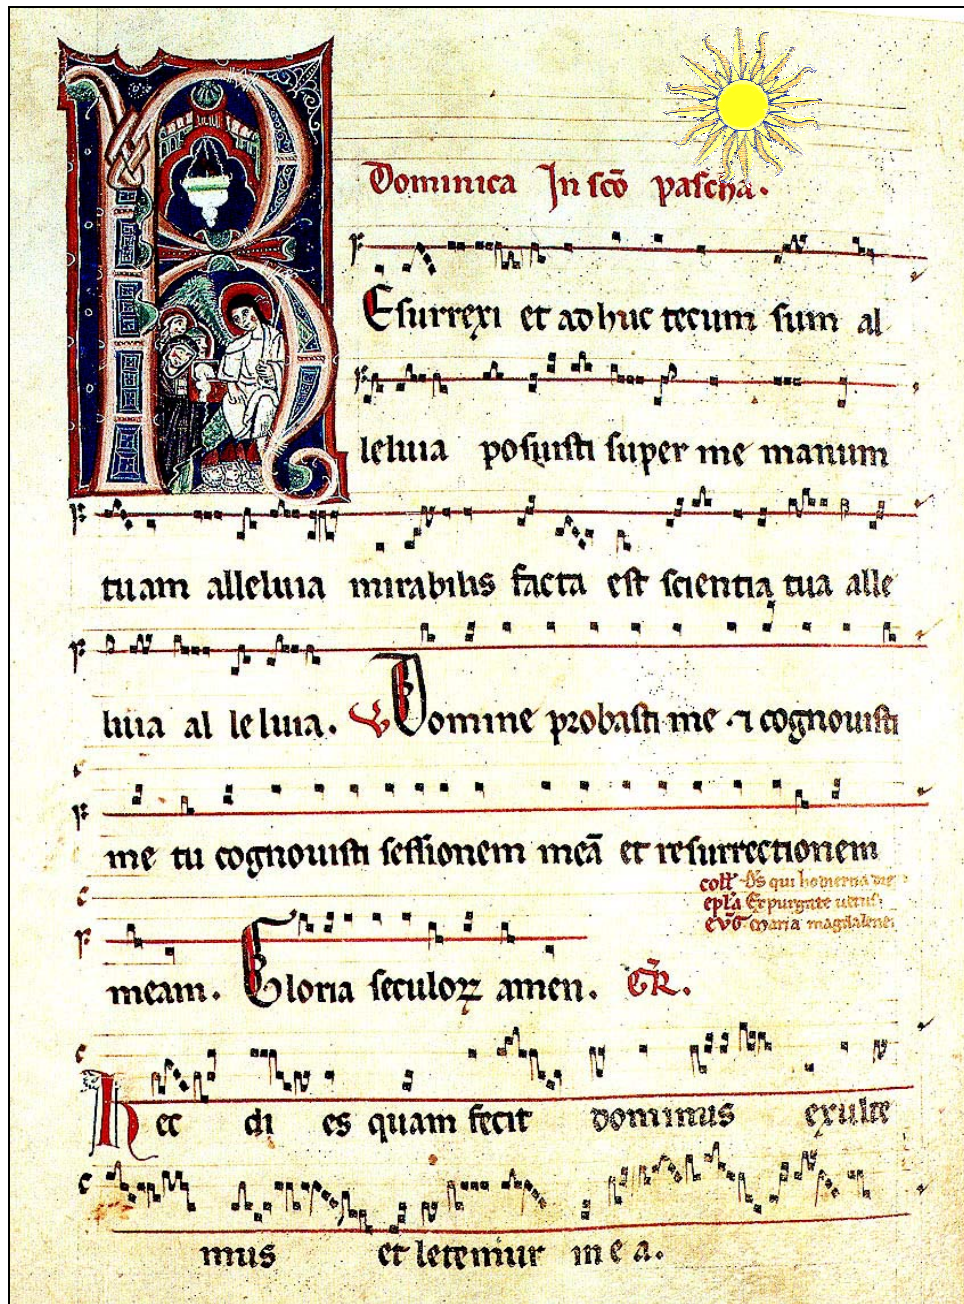 Dominica In scō pascha.
Esurrexi et adhuc tecum sum al
leluia posuisti super me manum
tuam alleluia mirabilis facta est scientia tua alle
luia al le luia. V Domine probasti me · ⁊ cognouisti
me tu cognouisti sessionem meā et resurrectionem
coll̄ Ds qui hodierna die
epl̄a Expurgate uetus
evḡ Maria magdalene
meam. Gloria seculoꝝ amen. G̃R.
hec di es quam fecit dominus exulte
mus et letemur in e a.